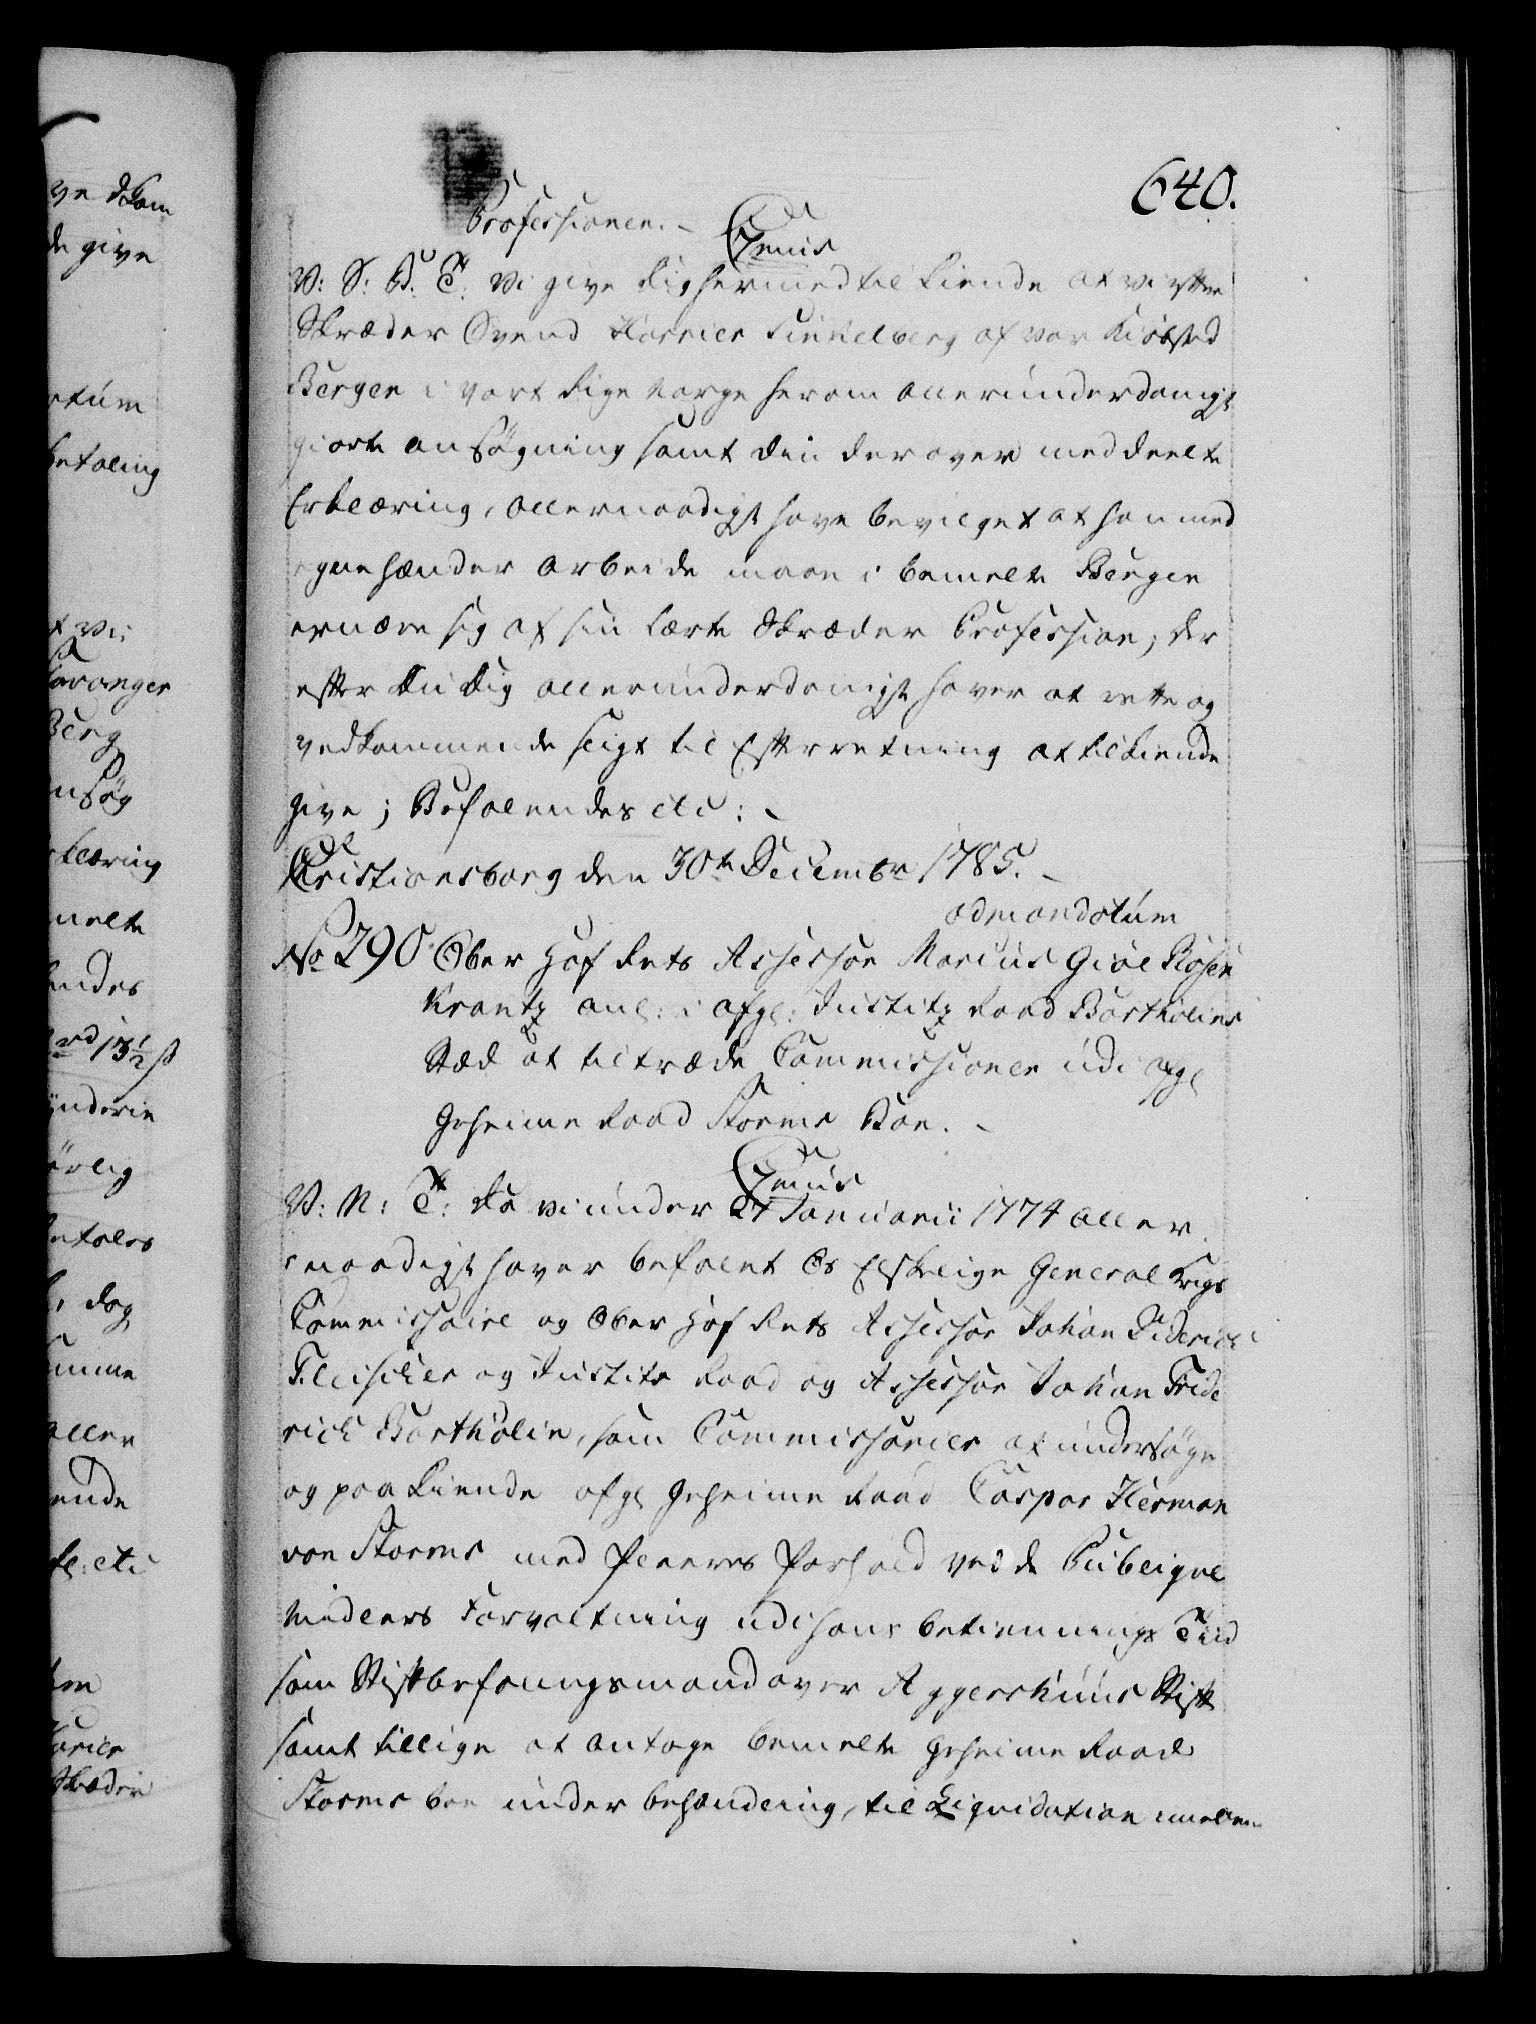 640.
Professionen. -
Genus
V: S: B: T: Vi give dig hermed til kiende at vi efter
Skræder Svend Harries Finkelberg af vor Kiøbsted
Bergen i vort Rige Norge herom allerunderdanigst
giorte ansøgning samt din derover meddeelte
Erklæring, allernaadigst have bevilget at han med
egne hænder arbeide maae i bemelte Bergen
ernære sig af sin lærte Skræder Profession; der
efter du dig allerunderdanigst haver at rette og
vedkommende sligt til Efterretning at tilkiende
give; Befalendes etc: -
Christiansborg den 30te Decembr 1785. -
ad mandatum
No 290 Ober Hof Rets Assessor Marcus Giøe Rosen
Krantz anl: i afgl: Justitz Raad Bartholins
Sted at tiltræde Commissionen udi afgl
Geheime Raad Storms Boe. -
Genus
V: N: T: Da vi under 27 Januarii 1774 aller
naadigst haver befalet Os Elskelige General Krigs
Commissaire og Ober Hof Rets Assessor Johan Diderich
Fleischer og Justits Raad og Assessor Johan Fride
rich Bartholin, som Commissarier at undersøge
og paakiende afgl Geheime Raad Caspar Herman
von Storms med Fleeres Forhold ved de Publique
Midlers Forvaltning udi hans betiennings Tiid
som Stiftbefalingsmand over Aggershuus Stift
samt tillige at antage bemelte Geheime Raad
Storms boe under behandling, til Liqvidation imellem
ve dkom
de give
rtum
betaling
t vi
Stavanger
Berg
nsøg
rklæring
melte
endes
rd 13½ ß
etales
dog
umme
aller
ende
fl: etc
arier
Skræder